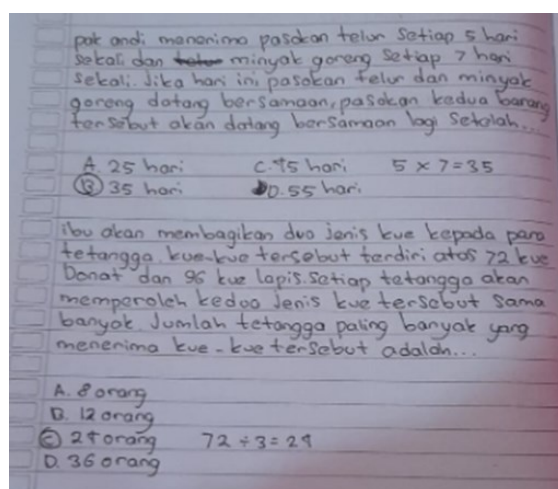 pak andi menerima pasokan telur setiap 5 hari
sekali dan minyak goreng setiap 7 hari
sekali. Jika hari ini pasokan telur dan minyak
goreng datang bersamaan, pasokan kedua barang
tersebut akan datang bersamaan lagi setelah...
A. 25 hari C. 45 hari 5 x 7 = 35
B. 35 hari D. 55 hari
ibu akan membagikan dua jenis kue kepada para
tetangga. kue-kue tersebut terdiri atas 72 kue
Donat dan 96 kue lapis. Setiap tetangga akan
memperoleh kedua jenis kue tersebut sama
banyak. Jumlah tetangga paling banyak yang
menerima kue-kue tersebut adalah...
A. 8 orang
B. 12 orang
C. 24 orang 72 ÷ 3 = 24
D. 36 orang